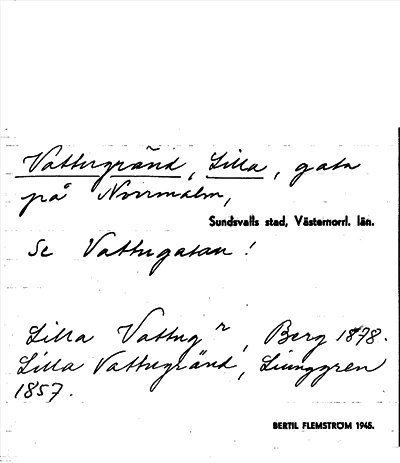 Vattugränd, Lilla, gata
på Norrmalm,
Sundsvalls stad, Västernorrl. län.
Se Vattugatan!
Lilla Vattug r, Berg 1878.
Lilla Vattugränd, Ljunggren
1857.
BERTIL FLEMSTRÖM 1945.